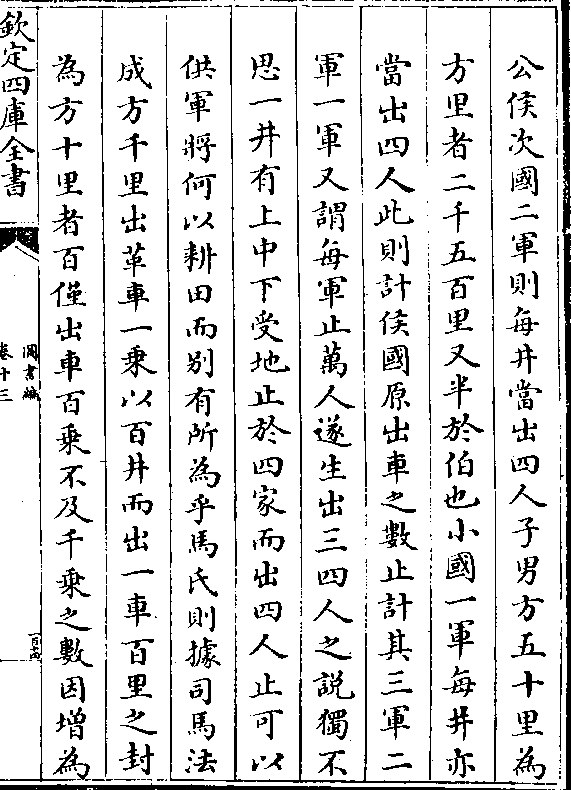 公侯次國二軍則每井當出四人子男方五十里為
方里者二千五百里又半於伯也小國一軍每井亦
當出四人此則計侯國原出車之數止計其三軍二
軍一軍又謂每軍止萬人遂生出三四人之説獨不
思一井有上中下受地止於四家而出四人止可以
供軍將何以耕田而别有所為乎馬氏則據司馬法
成方千里出革車一乗以百井而出一車百里之封
為方十里者百僅出車百乗不及千乗之數因増為
欽定四庫全書
圖書編
卷十三